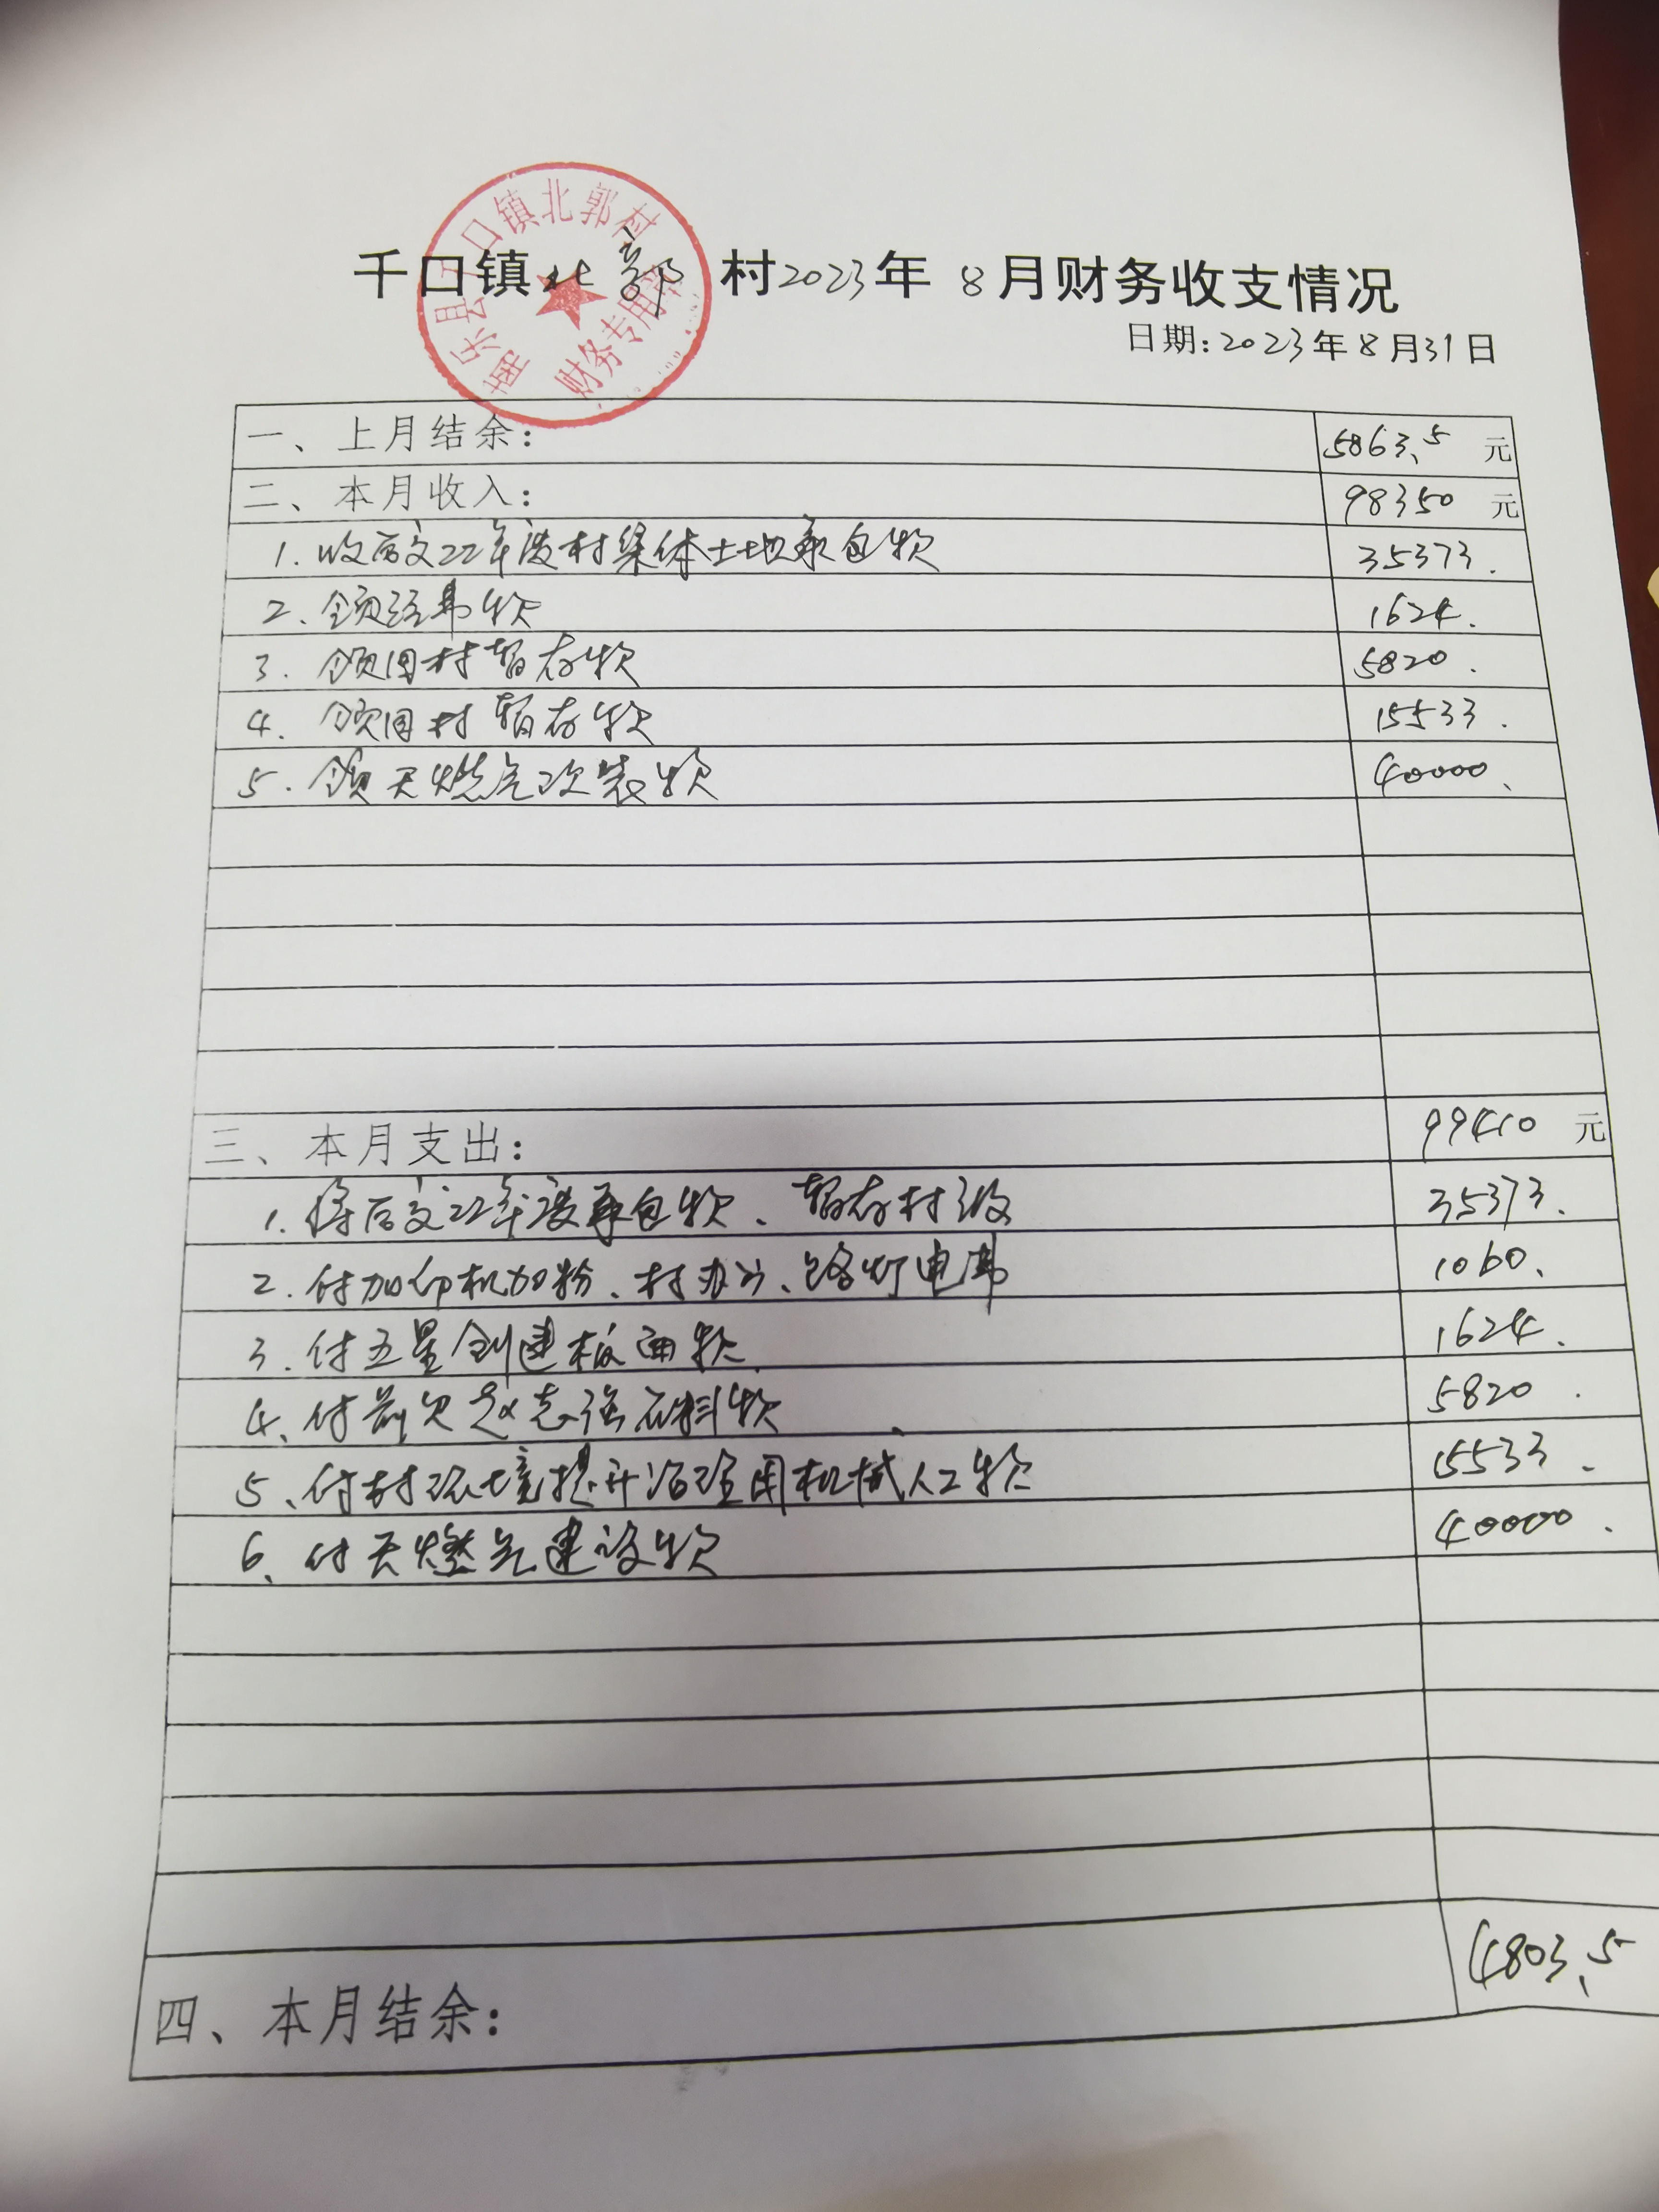 南乐县千口镇北郭村
财务专用章
千口镇北郭村2023年 8月财务收支情况
日期:2023年8月31日
一、上月结余: 5863.5 元
二、本月收入: 98350 元
1.收后交22年度村集体土地承包款 35373.
2.领经费款 1624.
3.领回村暂存款 5820.
4.领回村暂存款 15533.
5.领天燃气改装款 40000.
三、本月支出: 99410 元
1.将后交22年度承包款、暂存村级 35373.
2.付加印机加粉、村办公、路灯电费 1060.
3.付五星创建板面款 1624.
4.付前欠赵志强石料款 5820.
5.付村环境提升治理用机械人工款 15533.
6.付天燃气建设款 40000.
四、本月结余: 4803.5